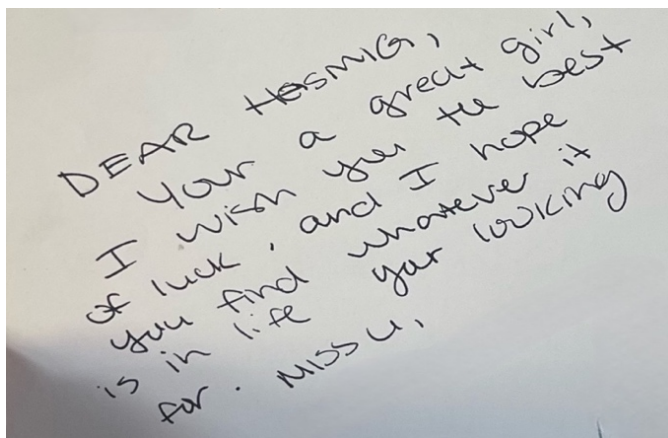 DEAR HASMIG,
Your a great girl,
I wish you the best
of luck, and I hope
you find whatever it
is in life your looking
for. Miss u,